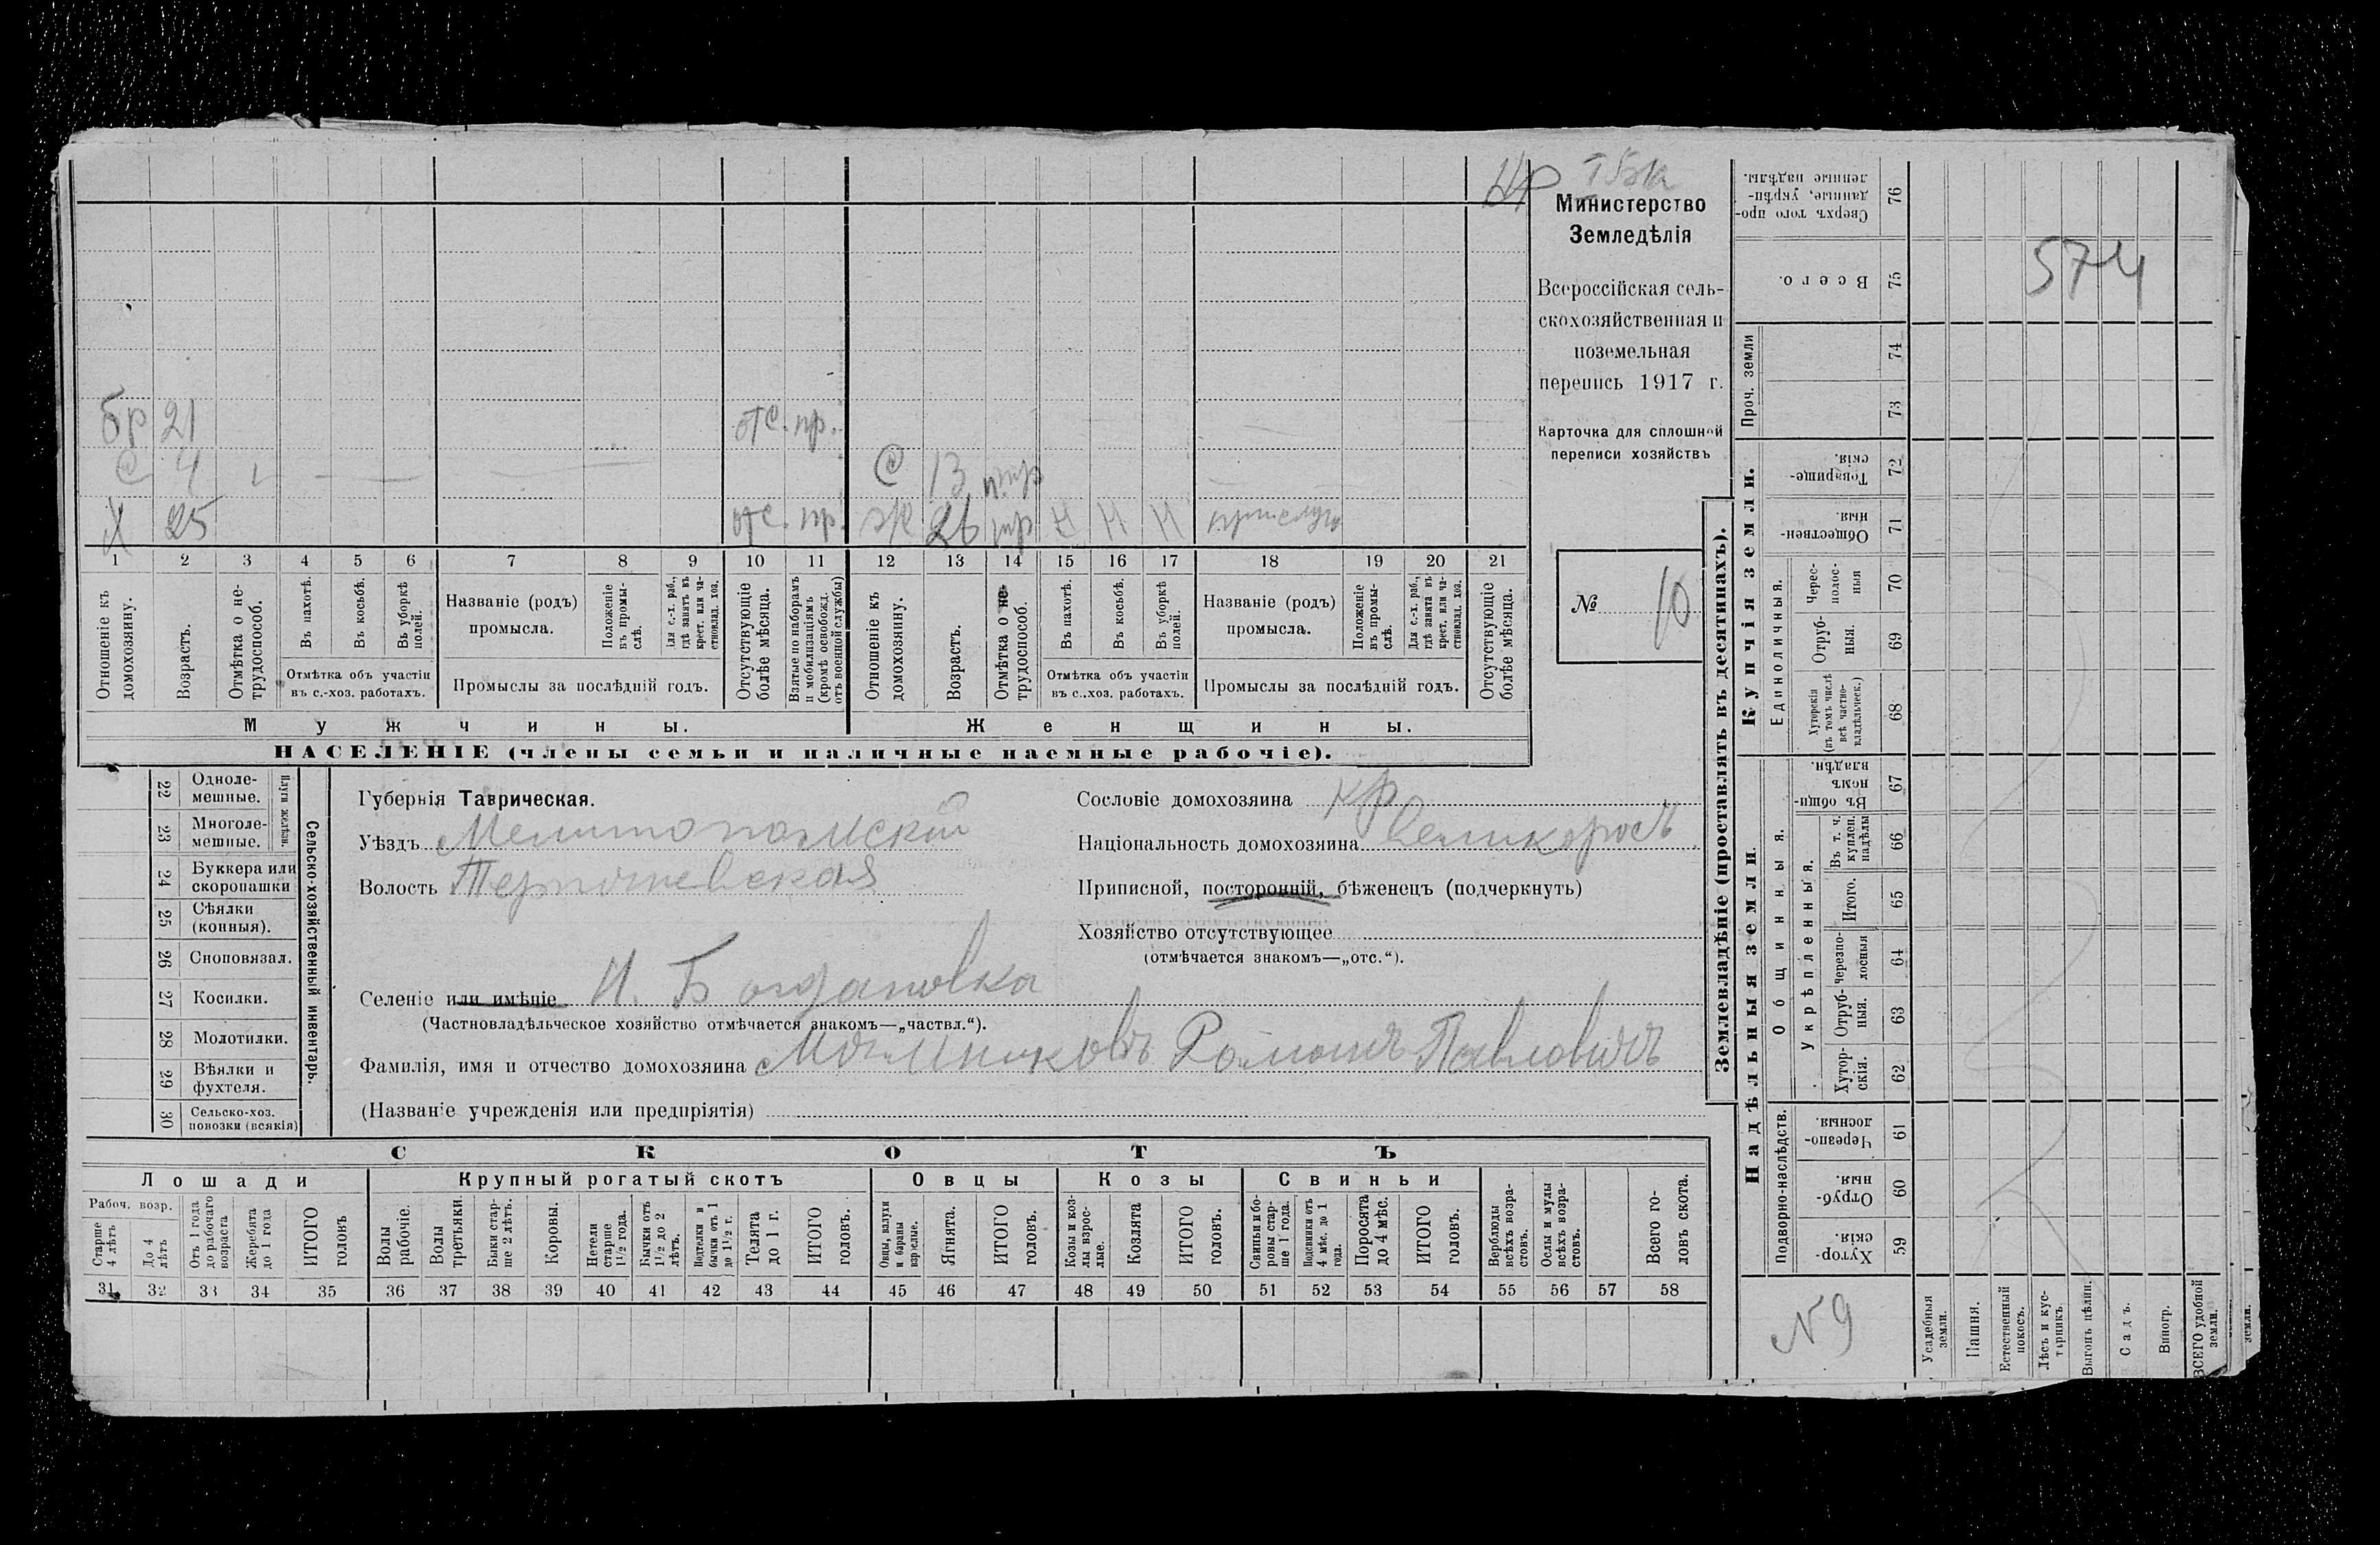 ТБК
Министерство
Земледѣлія
Всероссійская сель-
скохозяйственная и
поземельная
перепись 1917 г.
Карточка для сплошной
переписи хозяйствъ
№ 10
бр 21 отс. пр.
С 4 С 13
Х 25 отс. пр. ж 26 нтр Н Н Н прислуга
1 2 3 4 5 6 7 8 9 10 11 12 13 14 15 16 17 18 19 20 21
Отношеніе къ домохозяину.
Возрастъ.
Отмѣтка о не-трудоспособ.
Въ пахотѣ.
Въ косьбѣ.
Въ уборкѣ полей.
Отмѣтка объ участіи
въ с.-хоз. работахъ.
Названіе (родъ)
промысла.
Положеніе въ промы-слѣ.
Для с.-х. раб., гдѣ занятъ въ крест. или ча-стновлад. хоз.
Промыслы за послѣдній годъ.
Отсутствующіе болѣе мѣсяца.
Взятые по наборамъ и мобилизаціямъ (кромѣ освобожд. отъ военной службы)
Отношеніе къ домохозяину.
Возрастъ.
Отмѣтка о не-трудоспособ.
Въ пахотѣ.
Въ косьбѣ.
Въ уборкѣ полей.
Отмѣтка объ участіи
въ с.-хоз. работахъ.
Названіе (родъ)
промысла.
Положеніе въ промы-слѣ.
Для с.-х. раб., гдѣ занята въ крест. или ча-стновлад. хоз.
Промыслы за послѣдній годъ.
Отсутствующіе болѣе мѣсяца.
Мужчины. Женщины.
НАСЕЛЕНІЕ (члены семьи и наличные наемные рабочіе).
22 Одноле-мешные.
23 Многоле-мешные.
Плуги желѣзн.
24 Буккера или скоропашки
25 Сѣялки (конныя).
26 Сноповязал.
27 Косилки.
28 Молотилки.
29 Вѣялки и фухтеля.
30 Сельско-хоз. повозки (всякія)
Сельско-хозяйственный инвентарь.
Губернія Таврическая.
Уѣздъ Мелитопольскій
Волость Терпѣньевская
Селеніе или имѣніе Н. Богдановка
(Частновладѣльческое хозяйство отмѣчается знакомъ—„частвл.“).
Фамилія, имя и отчество домохозяина Мѣльниковъ Романъ Павловичъ
(Названіе учрежденія или предпріятія)
Сословіе домохозяина кр
Національность домохозяина великороссъ
Приписной, посторонній, бѣженецъ (подчеркнуть)
Хозяйство отсутствующее
(отмѣчается знакомъ—„отс.“).
СКОТЪ
Лошади Крупный рогатый скотъ Овцы Козы Свиньи
Рабоч. возр.
Старше 4 лѣтъ
До 4 лѣтъ
Отъ 1 года до рабочаго возраста
Жеребята до 1 года
ИТОГО головъ
Волы рабочіе.
Волы третьяки.
Быки стар-ше 2 лѣтъ.
Коровы.
Нетели старше 1½ года.
Бычки отъ 1½ до 2 лѣтъ.
Подтелки и бычки отъ 1 до 1½ г.
Телята до 1 г.
ИТОГО головъ.
Овцы, валухи и бараны взрослые.
Ягнята.
ИТОГО головъ.
Козы и коз-лы взрос-лые.
Козлята
ИТОГО головъ.
Свиньи и бо-ровы стар-ше 1 года.
Подсвинки отъ 4 мѣс. до 1 года.
Поросята до 4 мѣс.
ИТОГО головъ.
Верблюды всѣхъ возра-стовъ.
Ослы и мулы всѣхъ возра-стовъ.
Всего го-ловъ скота.
31 32 33 34 35 36 37 38 39 40 41 42 43 44 45 46 47 48 49 50 51 52 53 54 55 56 57 58
Землевладѣніе (проставлять въ десятинахъ).
Надѣльныя земли
Купчія земли.
Проч. земли
Сверхъ того про-данные, укрѣп-ленные надѣлы. 76
Всего. 75
574
74
73
Товарище-скія. 72
Обществен-ныя. 71
Единоличныя.
Черес-полос-ныя 70
Отруб-ныя. 69
Хуторскія (въ томъ числѣ всѣ частно-владѣльческ.) 68
Общинныя.
Въ общи-номъ владѣн. 67
Укрѣпленныя.
Въ т. ч. куплен. надѣлы 66
Итого. 65
Черезпо-лосныя 64
Отруб-ныя. 63
Хутор-скія. 62
Подворно-наслѣдств.
Черезпо-лосныя. 61
Отруб-ныя. 60
Хутор-скія. 59
N 9
Усадебныя земли.
Пашня.
Естественный покосъ.
Лѣсъ и кус-тарникъ.
Выгонъ цѣлин.
Садъ.
Виногр.
ВСЕГО удобной земли.
земли.